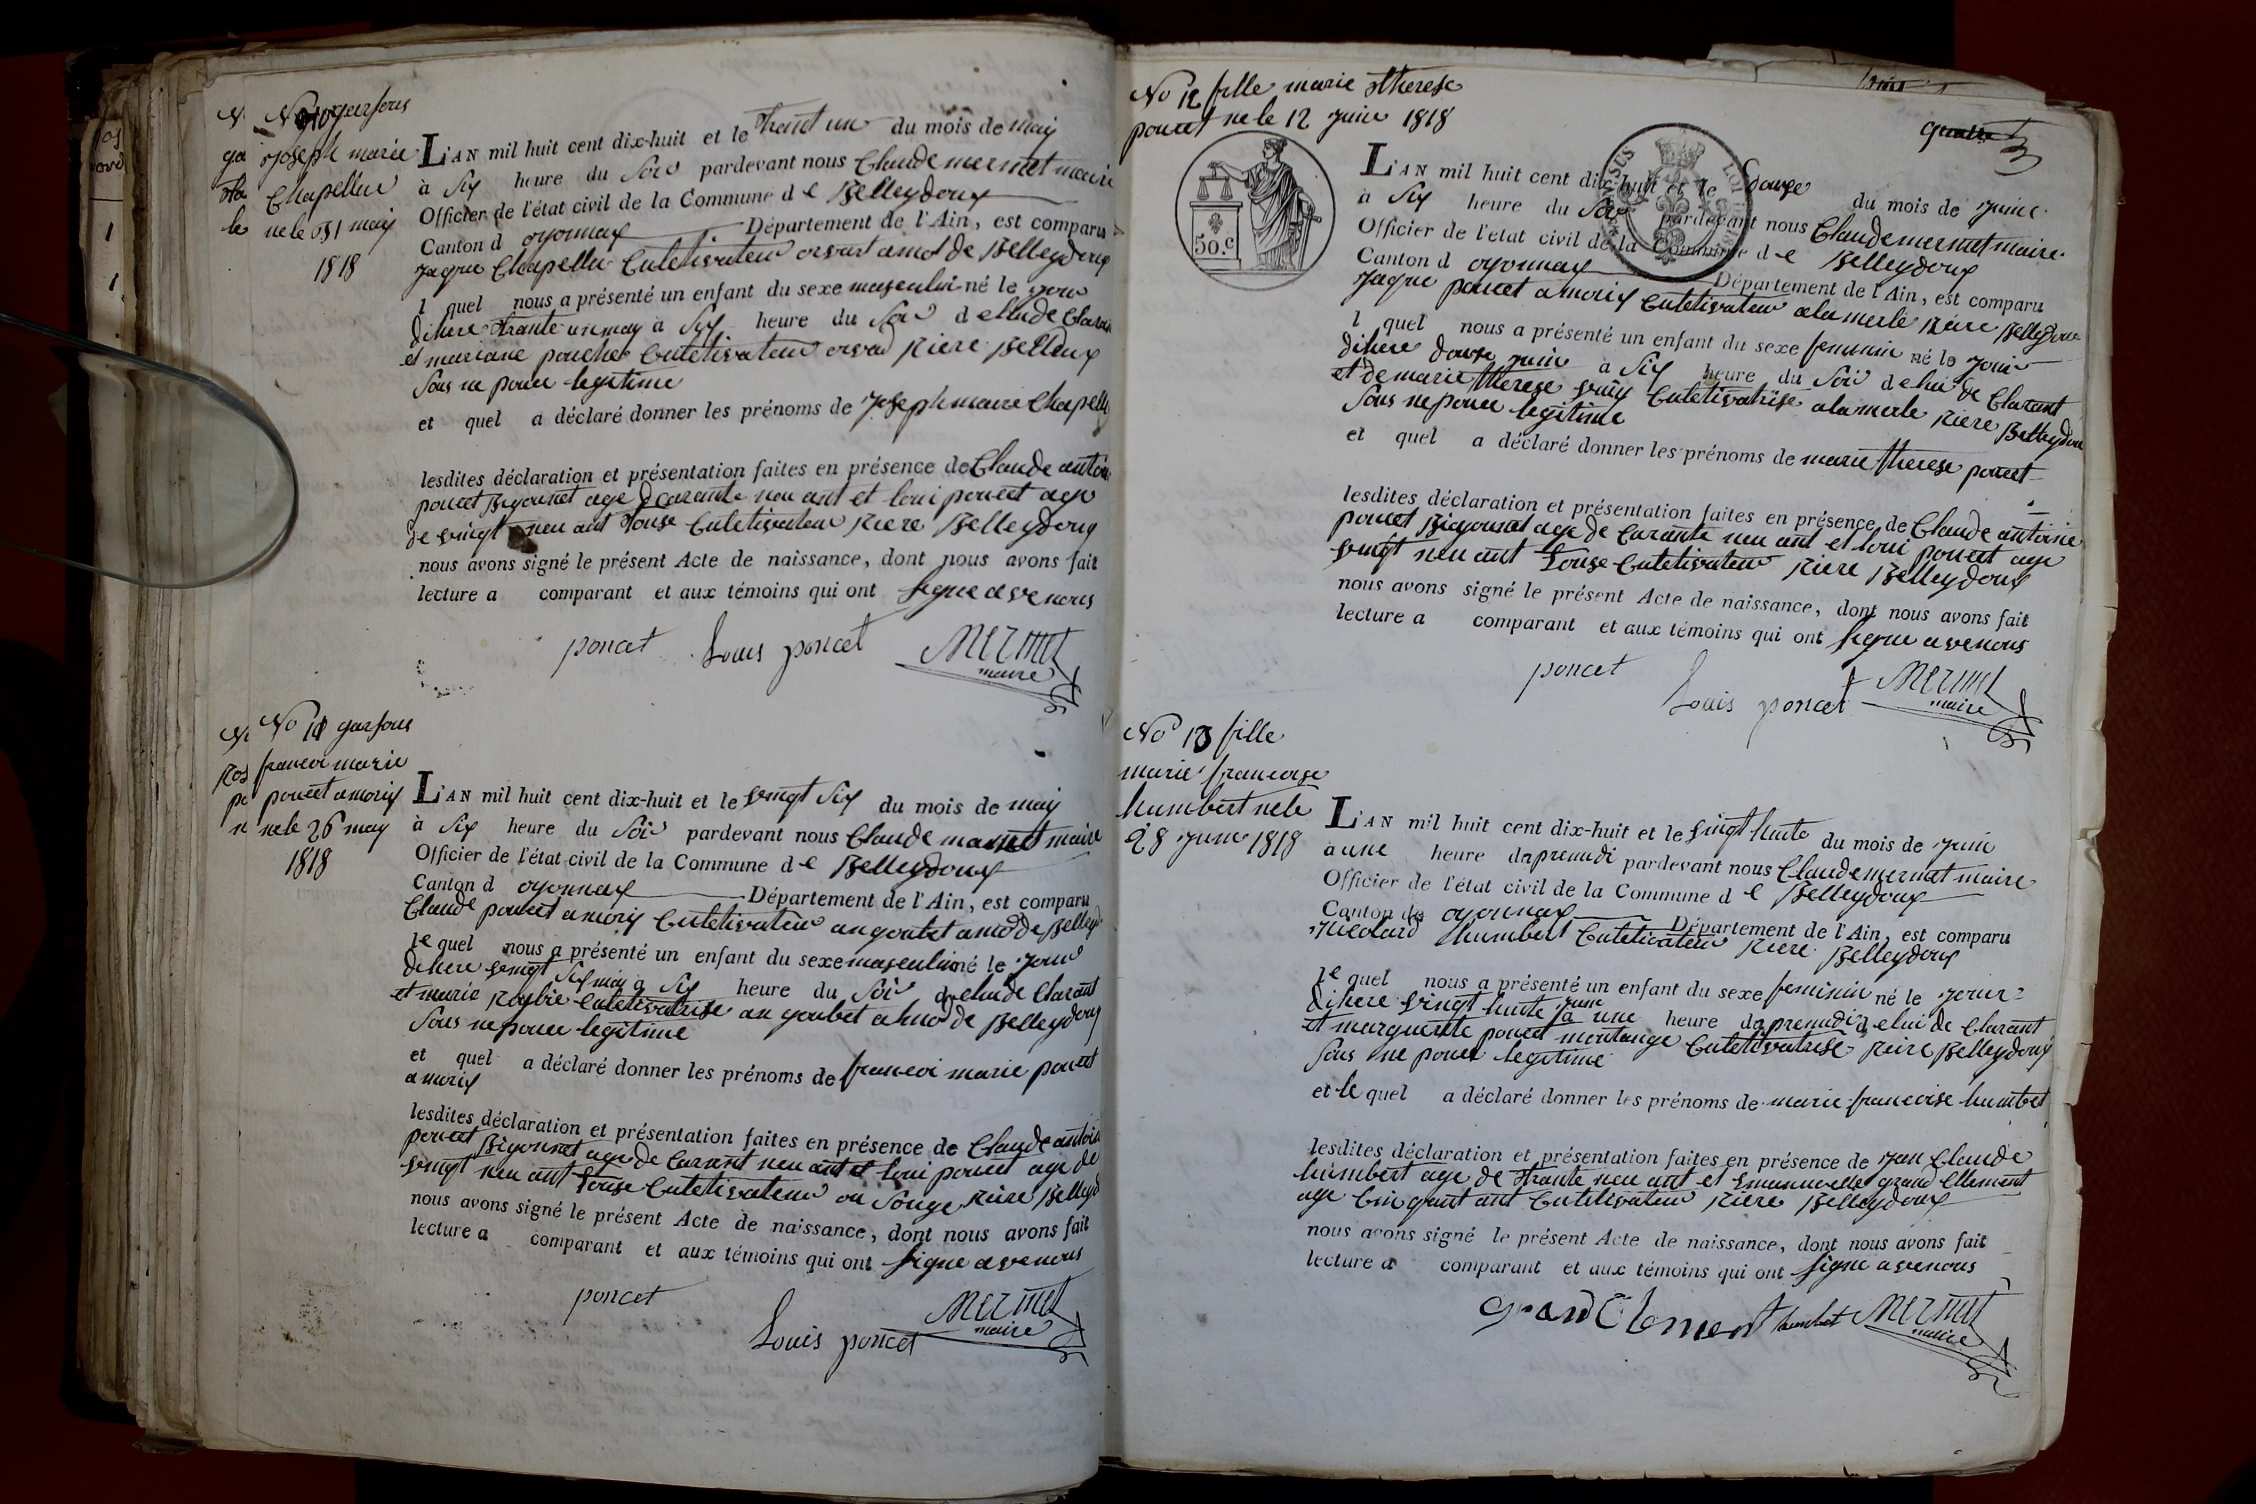 No 10 garsons
joseph marie
Chapellu
ne le 31 may
1818
L'AN mil huit cent dix-huit et le trant un du mois de may
à Six heure du Soir pardevant nous Claude mermet maire
Officier de l'état civil de la Commune d e Belleydoux
Canton d oyonnax Département de l'Ain, est comparu
jaque Chapellu Cultivateur orvat amot de Belleydoux
l quel nous a présenté un enfant du sexe masculin né le jour
dihere trante un may à Six heure du Soir
et mariane ponchet Cultivateur orvad riere Belldoux
Sous ne pouce legitime
et quel a déclaré donner les prénoms de joseph marie Chapellu
lesdites déclaration et présentation faites en présence de Claude antoine
poncet Bigonnet age de carante neu ant et loui poncet age
de vingt neu ant touse Cultivateur riere Belleydoux
nous avons signé le présent Acte de naissance, dont nous avons fait
lecture a comparant et aux témoins qui ont signe avenous
poncet Louis poncet MERMET
maire
No 11 garsons
francoi marie
poncet amorix
ne le 26 may
1818
L'AN mil huit cent dix-huit et le vingt Six du mois de may
à Six heure du Soir pardevant nous Claude mermet maire
Officier de l'état civil de la Commune d e Belleydoux
Canton d oyonnax Département de l'Ain, est comparu
Claude poncet amorix Cultivateur au goubet amo de Belleyd
le quel nous a présenté un enfant du sexe masculin né le jour
dihere vingt Six may à Six heure du Soir de lui de Clarant
et marie Cultivatrise au goubet amo de Belleydoux
Sous ne pouce legitime
et quel a déclaré donner les prénoms de francoi marie poncet
amorix
lesdites déclaration et présentation faites en présence de Claude antoine
poncet Bigonnet age de carant neu ant et loui poncet age de
vingt neu ant touse Cultivateur riere Belleyd
nous avons signé le présent Acte de naissance, dont nous avons fait
lecture a comparant et aux témoins qui ont signe avenous
poncet
Louis poncet MERMET
maire
No 12 fille marie therese
poncet ne le 12 juin 1818
50.c
L'AN mil huit cent dix-huit et le douze du mois de juin
à Six heure du Soir pardevant nous Claude mermet maire
Officier de l'état civil de la Commune d e Belleydoux
Canton d oyonnax Département de l'Ain, est comparu
jaque poncet amorix Cultivateur alamerle riere Belleydoux
l quel nous a présenté un enfant du sexe feminin né le jour
dihere douze juin à Six heure du Soir de lui de Clarant
et de marie therese Cultivatrise alamerle riere Belleydoux
Sous ne pouce legitime
et quel a déclaré donner les prénoms de marie therese poncet
lesdites déclaration et présentation faites en présence de Claude antoine
poncet Bigonnet age de carante neu ant et loui poncet age
vingt neu ant touse Cultivateur riere Belleydoux
nous avons signé le présent Acte de naissance, dont nous avons fait
lecture a comparant et aux témoins qui ont signe avenous
poncet
Louis poncet MERMET
maire
No 13 fille
marie francoise
humbert ne le
28 juin 1818
L'AN mil huit cent dix-huit et le vingt huite du mois de juin
à une heure da premidi pardevant nous Claude mermet maire
Officier de l'état civil de la Commune d e Belleydoux
Canton d oyonnax Département de l'Ain, est comparu
humbert Cultivateur riere Belleydoux
le quel nous a présenté un enfant du sexe feminin né le jour
dihere vingt huite juin à une heure da premidi de lui de Clarant
et marguerite poncet montange Cultivatrise riere Belleydoux
Sous ne pouce legitime
et le quel a déclaré donner les prénoms de marie francoise humbert
lesdites déclaration et présentation faites en présence de jean Claude
humbert age de trante neu ant et emanuelle grand Clement
age Cinquant ant Cultivateur riere Belleydoux
nous avons signé le présent Acte de naissance, dont nous avons fait
lecture a comparant et aux témoins qui ont signe avenous
grand Clement humbert MERMET
maire